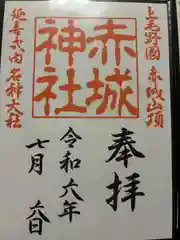 上毛野國 赤城山頂
奉拝
赤城神社
令和六年
七月 六日
延喜式内 名神大社